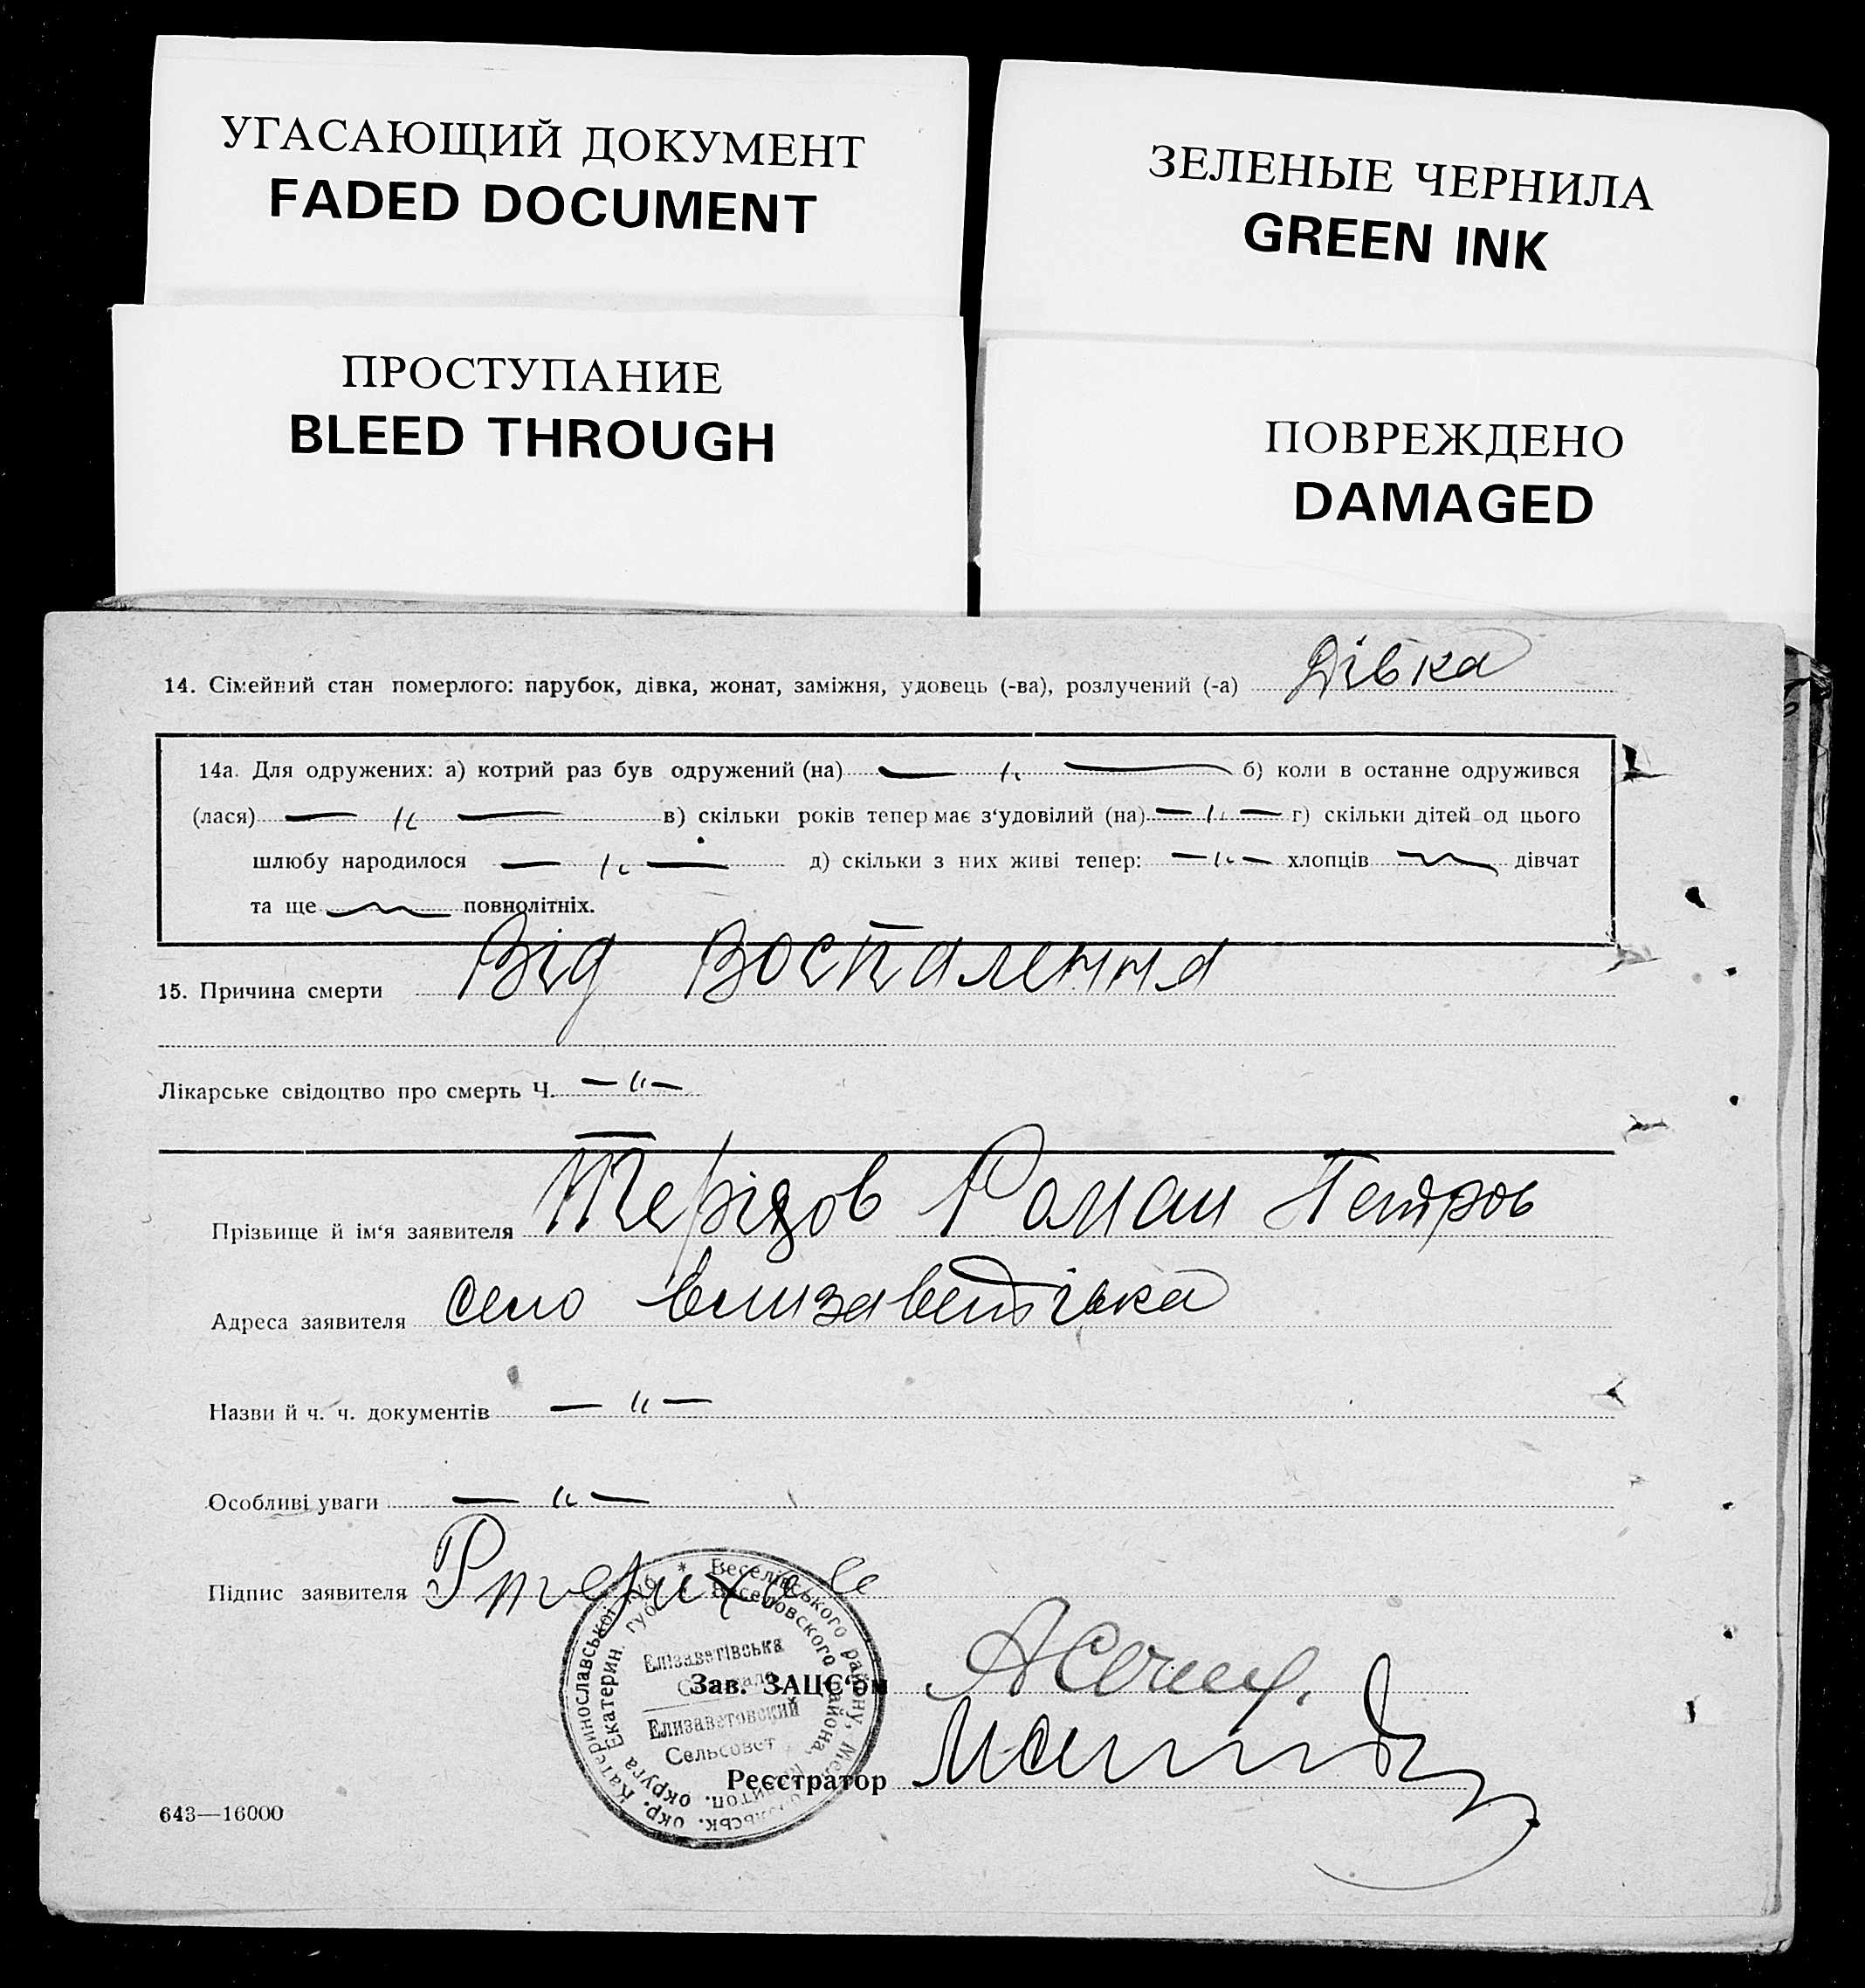 УГАСАЮЩИЙ ДОКУМЕНТ
FADED DOCUMENT
ЗЕЛЕНЫЕ ЧЕРНИЛА
GREEN INK
ПРОСТУПАНИЕ
BLEED THROUGH
ПОВРЕЖДЕНО
DAMAGED
14. Сімейний стан померлого: парубок, дівка, жонат, заміжня, удовець (-ва), розлучений (-а) Дівка
14а. Для одружених: а) котрий раз був одружений (на) — " — б) коли в останне одружився
(лася) — " — в) скільки років тепер має з'удовілий (на) — " — г) скільки дітей од цього
шлюбу народилося — " — д) скільки з них живі тепер: — " — хлопців дівчат
та ще повнолітніх.
15. Причина смерти Від Воспалення
Лікарське свідоцтво про смерть Ч. — " —
Прізвище й ім'я заявителя Роман Петров
Адреса заявителя село Елизаветівка
Назви й ч. ч. документів — " —
Особливі уваги — " —
Підпис заявителя
* Веселівського району, Мелітопільськ. окр. Катеринославської губ.
Веселовского района, Мелитоп. округа Екатерин. губ.
Елізаветівська
Сільрада
Елизаветовский
Сельсовет
Зав. ЗАЦС'ом
Реєстратор
643—16000